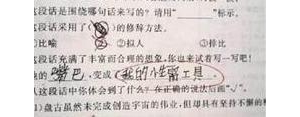 这段话是围绕哪句话来写的？请用“______”标示。
这段话采用了( )的修辞方法。
①比喻 ②拟人 ③排比
这段话充满了丰富而合理的想象,你也来试着写一写吧!
的嘴巴,变成(我的小生雷工具
人这段话中你体会到了什么?在正确的说法后画“√”。
1)盘古虽然未完成创造宇宙的伟业,但却具有坚持不懈的